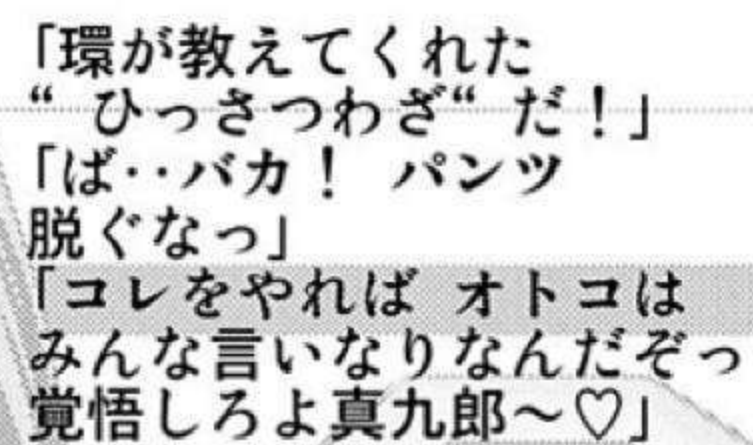 「環が教えてくれた
“ ひっさつわざ“ だ！」
「ば‥バカ！ パンツ
脱ぐなっ」
「コレをやれば オトコは
みんな言いなりなんだぞっ
覚悟しろよ真九郎～♡」